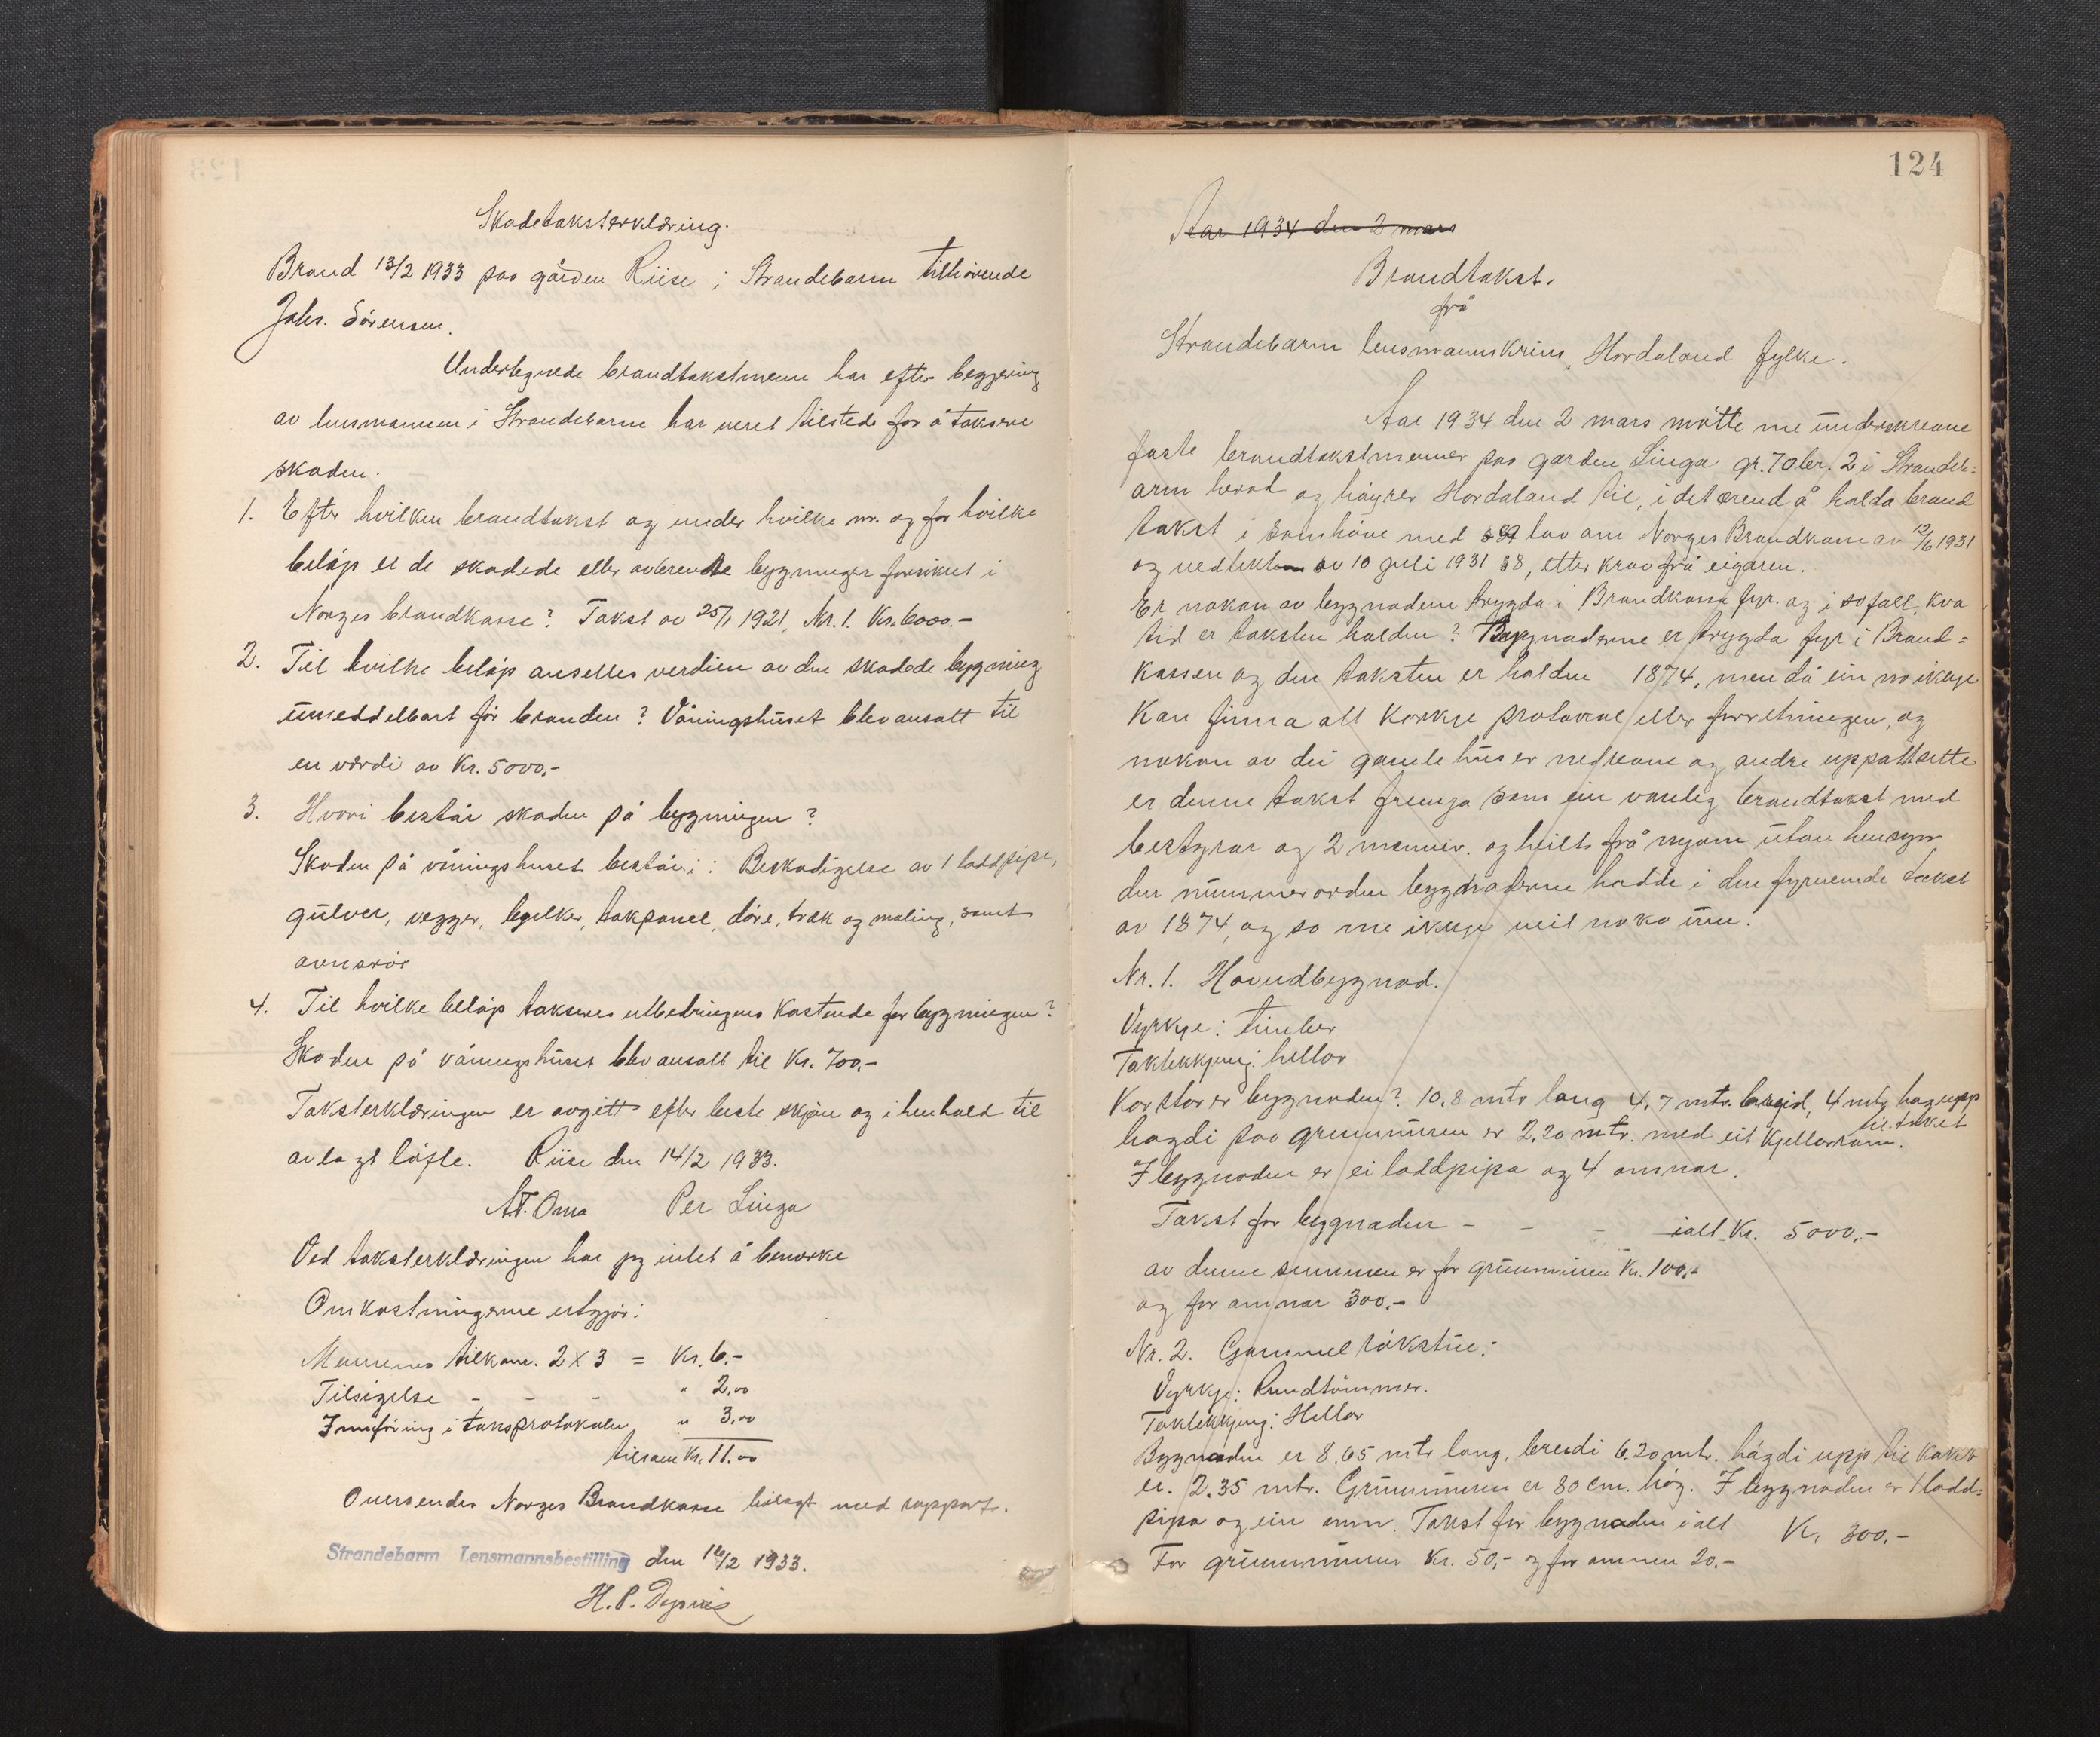 Skadetaksterklæring.
Brand 13/2 1933 paa gården Riise i Strandebarm tilhörende
Johs. Sörensen.
Undertegnede brandtakstmenn har efter begjering
av lensmannen i Strandebarm har veret tilstede for å taksere
skaden.
1. Efter hvilken brandtakst og under hvilke nr. og for hvilke
belöp er de skadede eller avbrendte bygninger forsikret i
Norges brandkasse? Takst av 25/1 1921, Nr. 1. Kr. 6000.-
2. Til hvilke belöp anselles verdien av den skadede bygning
umeddelbart för branden? Våningshuset blev ansatt til
en værdi av Kr. 5000,-
3. Hvori består skaden på bygningen?
Skaden på våningshuset består i: Beskadigelse av 1 laddpipe,
gulver, vegger, bjelker, takpanel, döre, træk og maling, samt
avnsrör
4. Til hvilke belöp takseres utbedringens kostende for bygningen?
Skaden på våningshuset blev ansatt til Kr. 700,-
Taksterklæringen er avgitt efter beste skjön og i henhold til
avlagt löfte. Riise den 14/2 1933.
A.T. Oma Per Linga
Ved taksterklæringen har jeg intet å bemerke
Omkostningerne utgjör:
Mennenes tilkom. 2 X 3 = Kr. 6.-
Tilsigelse - - - " 2,00
Innföring i taksprotokolen " 3,00
tilsam Kr. 11.00
Oversendes Norges Brandkasse bilagt med rapport.
Strandebarm Lensmannsbestilling den 16/2 1933.
H. P. Dysvik
124
Aar 1934 den 2 mars
Brandtakst.
frå
Strandebarm lensmannskrins, Hordaland fylke.
Aar 1934 den 2 mars mötte me underskrevne
faste brandtakstmenner paa garden Linga gr. 70 br. 2 i Strandeb=
arm herad og höyrer Hordaland til, i det ærend å halda brand
takst i samhöve med § 39 lov om Norges Brandkasse av 12/6 1931
og vedtekten av 10 juli 1931 § 8, etter krav frå eigaren.
Er nokon av bygnadene trygda i Brandkassa fyr. og i so fall, kva
tid er taksten halden? Bygnaderne er trygda fyr i Brand=
kassen og den taksten er halden 1874, men då ein no ikkje
kan finna att korkje protokol eller forretningen, og
nokon av dei gamle hus er nedrevne og andre uppattsette
er denne takst fremja som ein vanleg brandtakst med
bestyrar og 2 menner. og heilt frå nyom utan hensyn
den nummerorden bygnaderne hadde i den fyrnemde takst
av 1874, og so me ikkje veit noko um.
Nr. 1. Hovudbygnad.
Vyrkje: timber
Taktekkjing: hellor
Kor stor er bygnaden? 10,8 mtr lang 4,7 mtr. breid, 4 mtr hög upp
til taket
högdi paa grunnmuren er 2,20 mtr. med eit kjellarrum.
I bygnaden er ei laddpipa og 4 omnar.
Takst for bygnaden - - - ialt Kr. 5000,-
av denne summen er for grunnmuren Kr. 100,-
og for omnar 300.-
Nr. 2. Gammel rökstue:
Vyrkje: Rundtömmer.
Taktekkjing: Hellor
Bygnaden er 8.65 mtr lang, breidi 6.20 mtr. högdi upp til taket
er. 2.35 mtr. Grunnmuren er 80 cm. hög. I bygnaden er 1 ladd=
pipa og ein omn. Takst for bygnaden i alt Kr. 300.-
For grunnmuren Kr. 50,- og for omnen 20.-